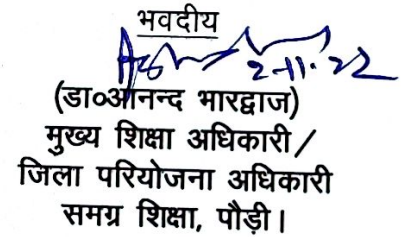 भवदीय
2-11-22
(डा०आनन्द भारद्वाज)
मुख्य शिक्षा अधिकारी /
जिला परियोजना अधिकारी
समग्र शिक्षा, पौड़ी।